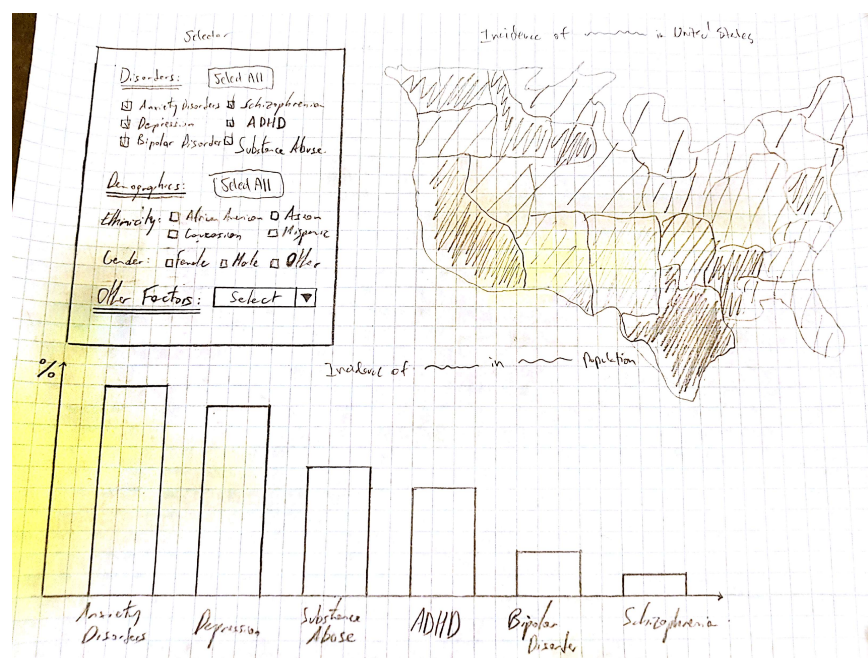 Selector
Disorders: Select All
Anxiety Disorders Schizophrenia
Depression ADHD
Bipolar Disorder Substance Abuse
Demographics: Select All
Ethnicity: African American Asian
Caucasian Hispanic
Gender: Female Male Other
Other Factors: Select
Incidence of in United States
%
Incidence of in Population
Anxiety Disorders
Depression
Substance Abuse
ADHD
Bipolar Disorder
Schizophrenia